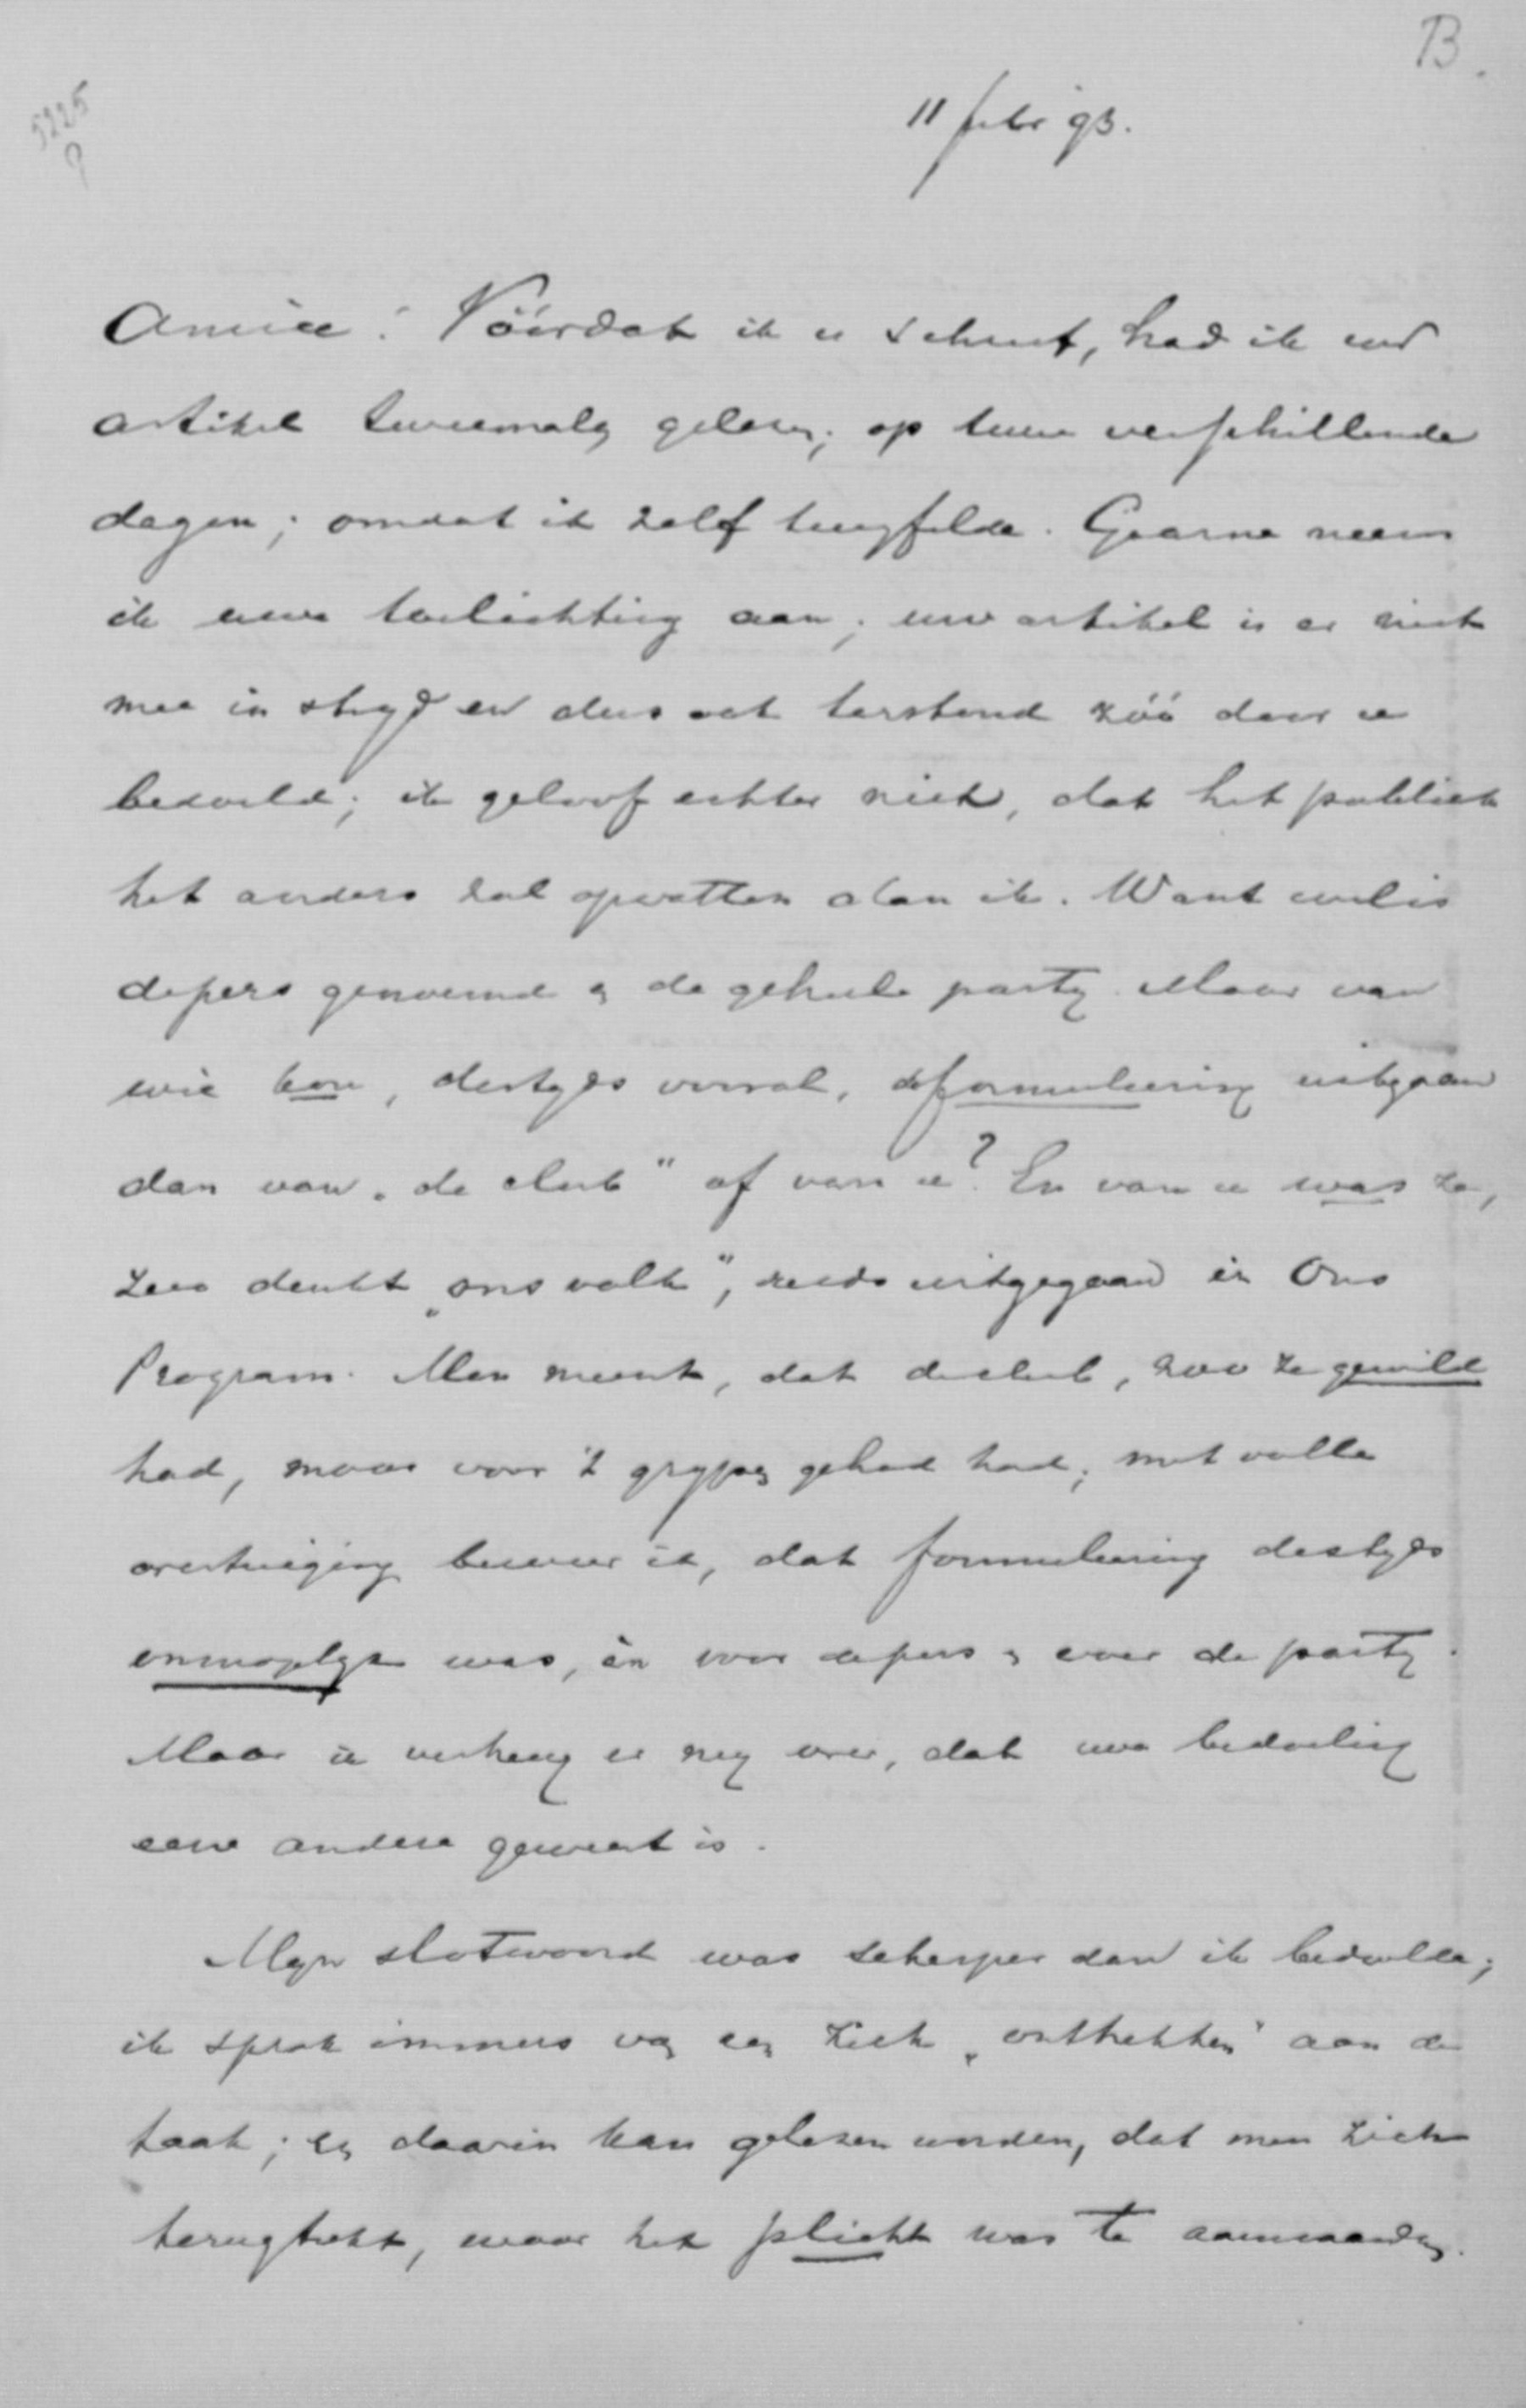 B.
5225
?
11 febr 93.
Amice! Vóórdat ik u schreef, had ik uw
artikel tweemaal gelezen; op twee verschillende
dagen; omdat ik zelf twyfelde. Gaarne neem
ik uwe toelichting aan; uw artikel is er niet
mee in stryd en dus ook terstond zóó door u
bedoeld; ik geloof echter niet, dat het publiek
het anders zal opvatten dan ik. Want wel is
de pers genoemd en de geheele party. Maar van
wie kon, destyds vooral, de formuleering uitgaan
dan van „de club" of van u? En van u was ze,
zoo denkt „ons volk", reeds uitgegaan in Ons
Program. Men meent, dat de club, zoo ze gewild
had, maar voor 't grypen gehad had; met volle
overtuiging beweer ik, dat formuleering destyds
onmogelyk was, èn voor de pers en voor de party.
Maar u verheug er my over, dat uwe bedoeling
eene andere geweest is.
Myn slotwoord was scherper dan ik bedoelde;
ik sprak immers van een zich „onttrekken" aan de
taak; en daarin kan gelezen worden, dat men zich
terugtrekt, waar het plicht was te aanvaarden.